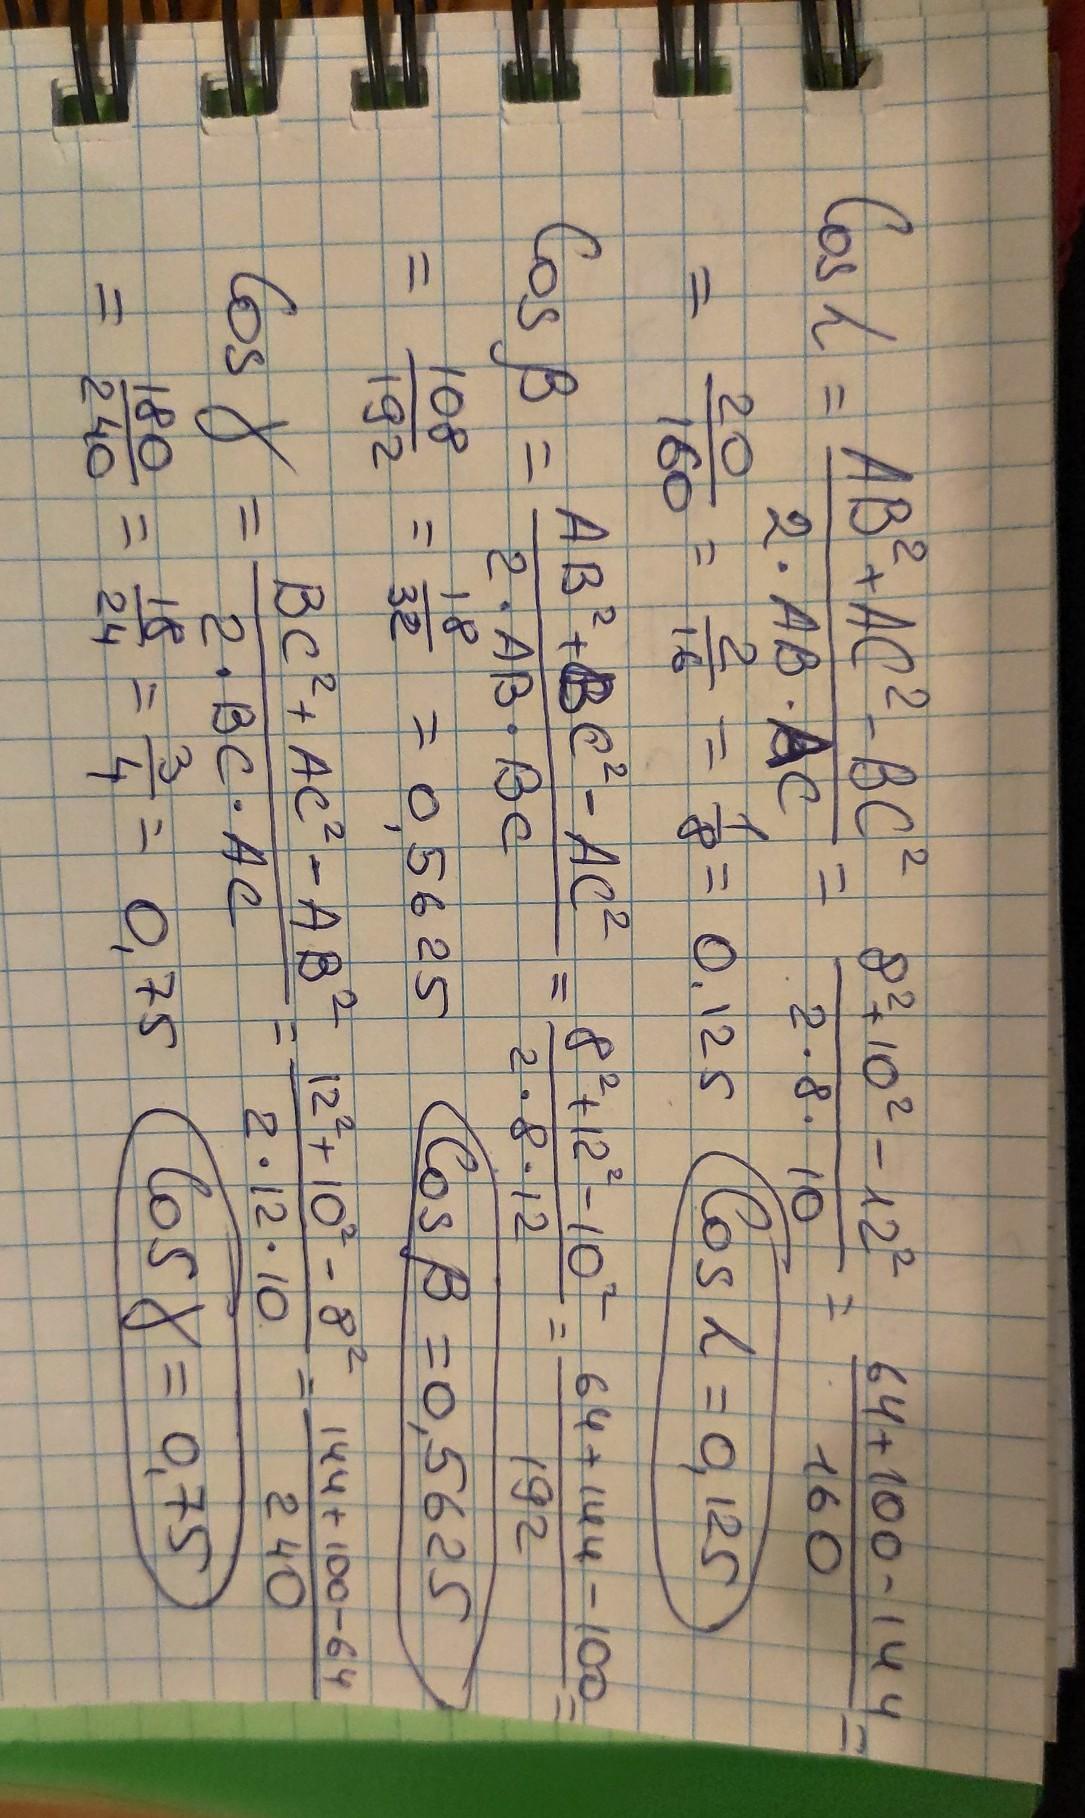 Cos α = AB² + AC² - BC² / 2 · AB · AC = 8² + 10² - 12² / 2 · 8 · 10 = 64 + 100 - 144 / 160 =
= 20/160 = 2/16 = 1/8 = 0,125 Cos α = 0,125
Cos β = AB² + BC² - AC² / 2 · AB · BC = 8² + 12² - 10² / 2 · 8 · 12 = 64 + 144 - 100 / 192 =
= 108/192 = 18/32 = 0,5625 Cos β = 0,5625
Cos γ = BC² + AC² - AB² / 2 · BC · AC = 12² + 10² - 8² / 2 · 12 · 10 = 144 + 100 - 64 / 240
= 180/240 = 18/24 = 3/4 = 0,75 Cos γ = 0,75